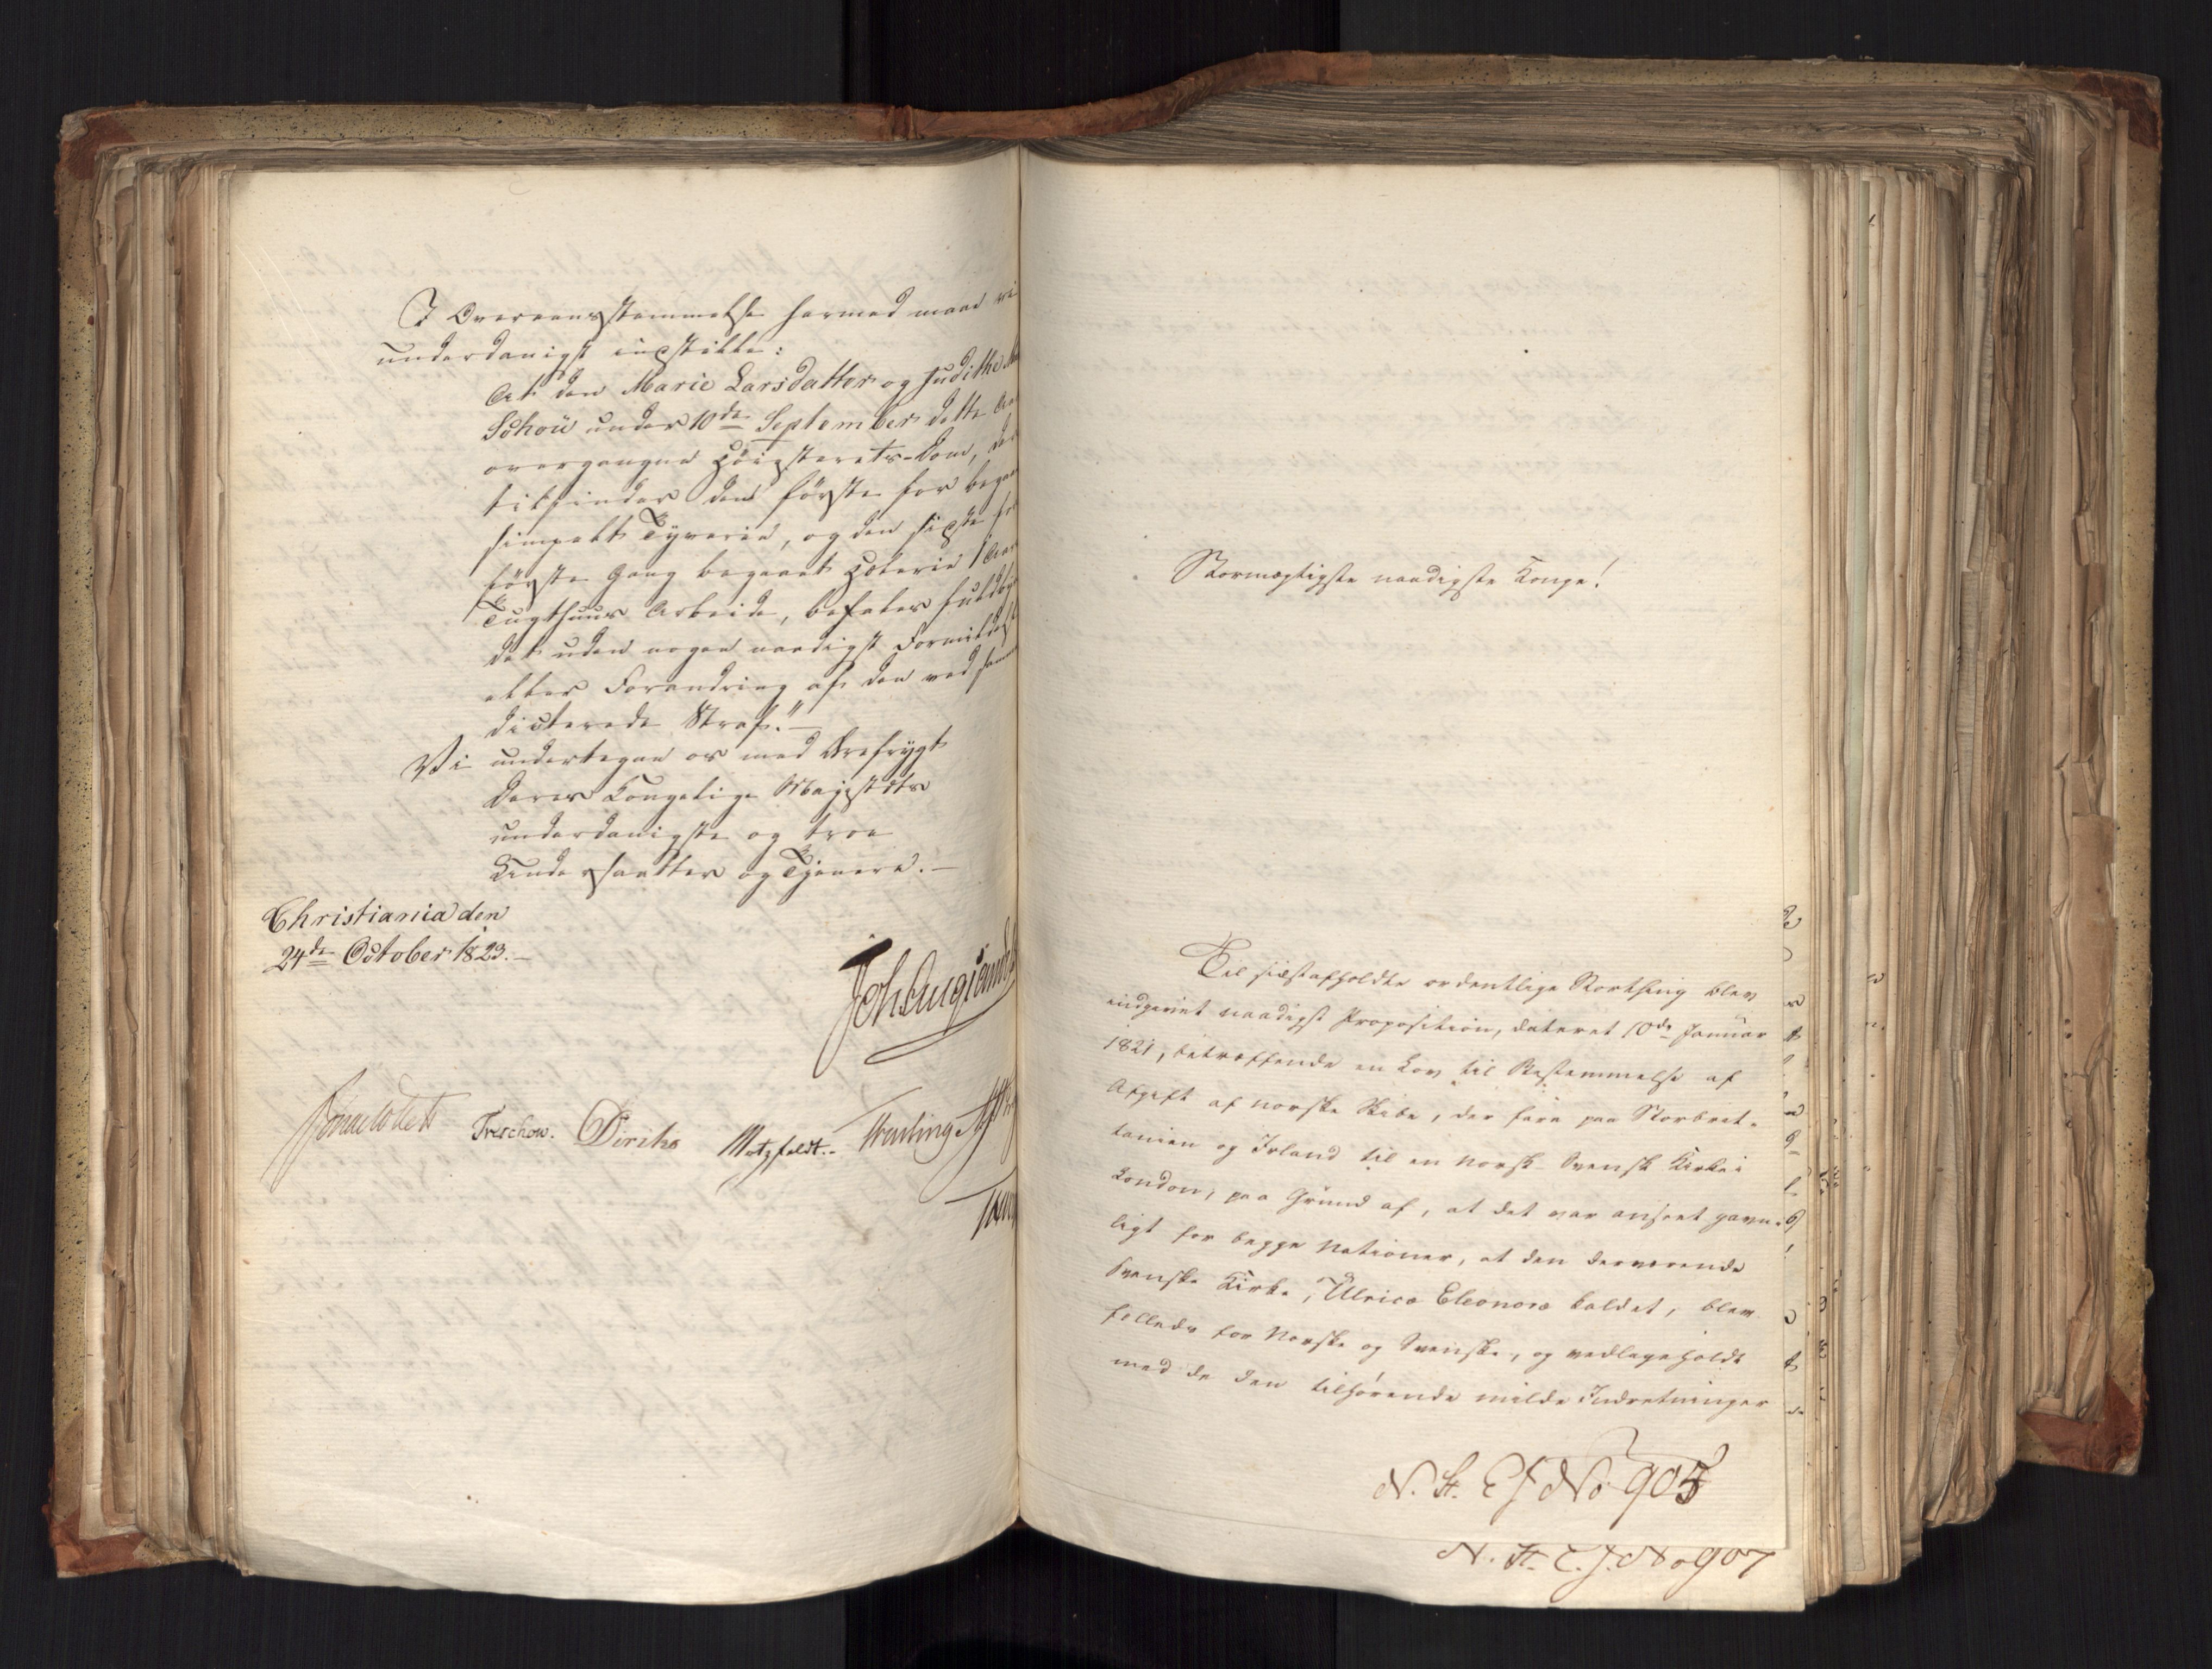 I Overeensstemmelse hermed maae vi
underdanigst indstille:
At den Marie Larsdatter og Judithe
Schou under 10de September dette Aar
overgangne Høiesterets-Dom, der
tilfinder den første for begaaet
simpelt Tyverie, og den sidste for
første Gang begaaet Hælerie 1 Aars
Tugthuus Arbeide, befales fuldbyr-
det uden nogen naadigst Formildelse
eller Forandring af den ved samme
dicterede Straf."—
Vi undertegne os med Ærefrygt
Deres Kongelige Majestæts
underdanigste og troe
Undersaatter og Tjenere.—
Christiania den
24de October 1823.—
Joh Aug Sandels
Sommerfeldt Treschow. Diriks Motzfeldt.
Stormægtigste naadigste Konge!
Til sidstafholdte ordentlige Storthing blev
indgivet naadigst Proposition, dateret 10de Januar
1821, betræffende en Lov til Bestemmelse af
Afgift af norske Skibe, der fare paa Storbrit-
tanien og Irland til en Norsk-Svensk Kirke i
London, paa Grund af, at det var anseet gavn-
ligt for begge Nationer, at den derværende
Svenske Kirke, Ulrica Eleonora kaldet, blev
fælleds for Norske og Svenske, og vedligeholdt
med de den tilhørende milde Indretninger
N. St. E J No 905
N. St. E. J. No 907